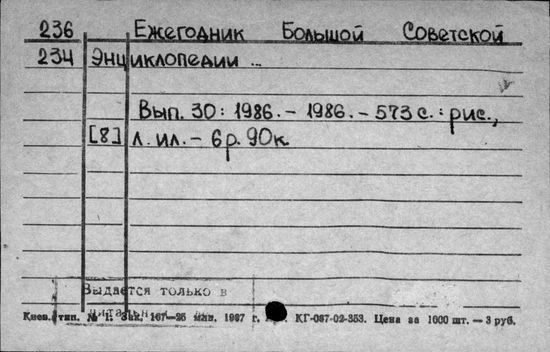 236 Ежегодник Большой Советской
234 Энциклопедии ...
Вып. 30: 1986. – 1986. – 573 с.: рис.,
[8] л. ил. – 6 р. 90 к.
Выдается только в
читальн
Киев. тип. № 1. Зак. 167—25 млн. 1987 г. КГ-087-02-353. Цена за 1000 шт. — 3 руб.